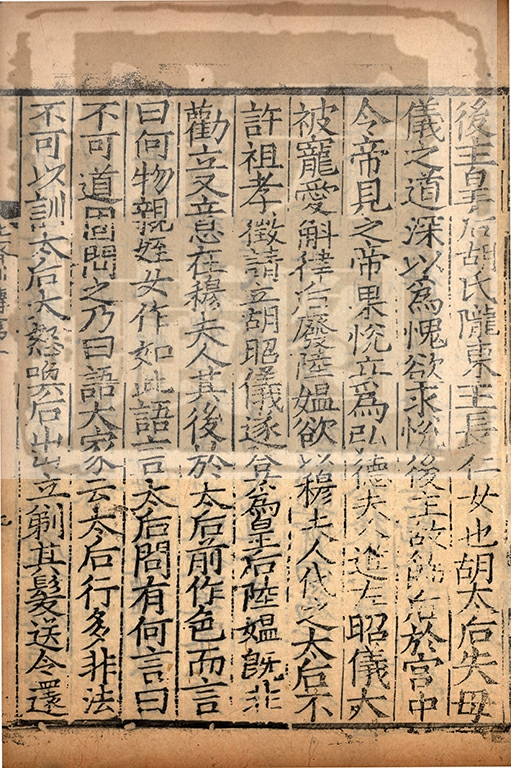 後主皇后胡氏隴東王長仁女也胡太后失母
儀之道深以爲愧欲求悅後主故飾后於宮中
令帝見之帝果悅立爲弘德夫人進左昭儀大
被寵愛斛律后廢陸媼欲以穆夫人代之太后不
許祖孝徵請立胡昭儀遂登爲皇后陸媼旣非
勸立又意在穆夫人其後於太后前作色而言
曰何物親姪女作如此語言太后問有何言曰
不可道固問之乃曰語大家云太后行多非法
不可以訓太后大怒喚后出立剃其髮送令還